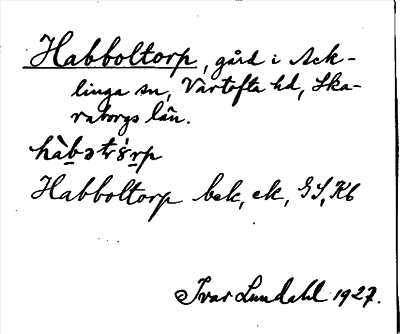 Habboltorp, gård i Ack-
linga sn, Vartofta hd, Ska-
raborgs län.
hàbətró̱rp
Habboltorp bek, ek, GS, Kb
Ivar Lundahl 1927.